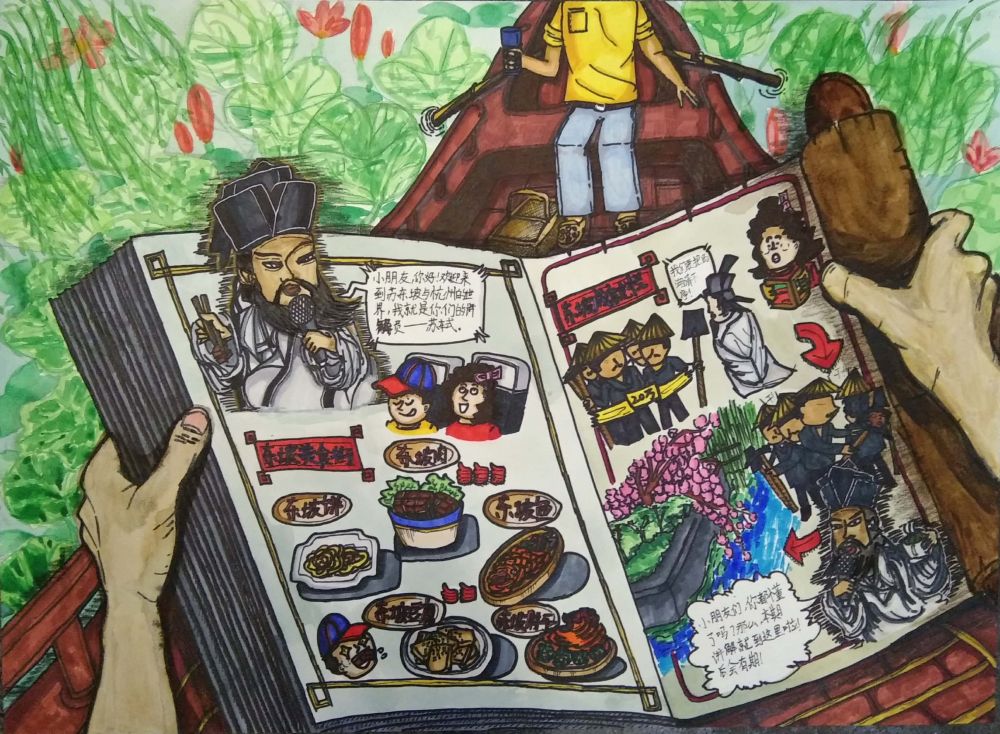 小朋友,你好!欢迎来
到苏东坡与杭州的世
界,我就是你们的讲
解员——苏轼。
东坡美食街
东坡肉
东坡饼
东坡鱼
东坡
东坡肘子
东坡
我们要把西
小朋友们,你都懂
了吗?那么,本期
讲解就到这里啦!
后会有期!